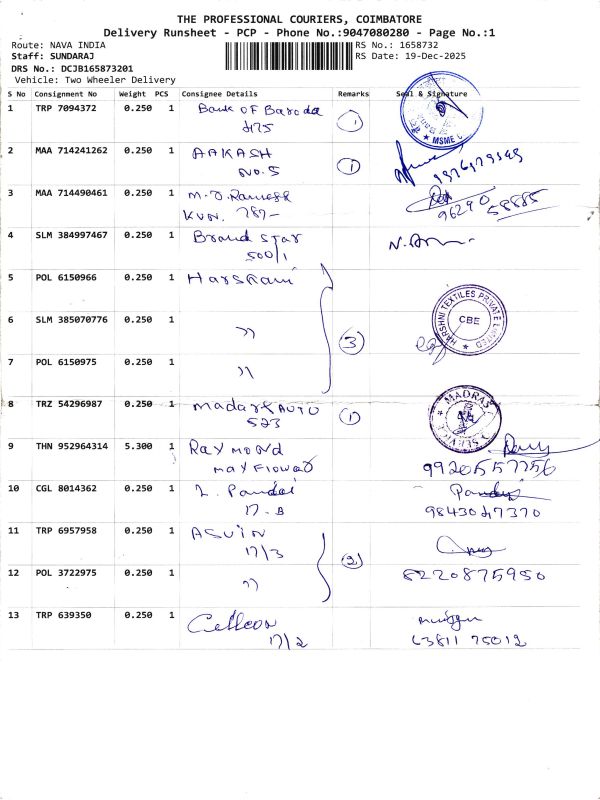 THE PROFESSIONAL COURIERS, COIMBATORE
Delivery Runsheet - PCP - Phone No.:9047080280 - Page No.:1
Route: NAVA INDIA RS No.: 1658732
Staff: SUNDARAJ RS Date: 19-Dec-2025
DRS No.: DCJB165873201
Vehicle: Two Wheeler Delivery
S No Consignment No Weight PCS Consignee Details Remarks Seal & Signature
1 TRP 7094372 0.250 1 Bank OF Baroda 1
MSME
2 MAA 714241262 0.250 1 AAKASH 1
NO. 5
3 MAA 714490461 0.250 1 M.D. Ramesh
KVN. 787- 96290 58885
4 SLM 384997467 0.250 1 Brand Star
500/1
5 POL 6150966 0.250 1 Harshani
HARSHNI TEXTILES PRIVATE LIMITED
CBE
6 SLM 385070776 0.250 1 " 3
7 POL 6150975 0.250 1 "
8 TRZ 54296987 0.250 1 Madark AUTO 1 MADRAS
523
9 THN 952964314 5.300 1 Raymond
mayflower 9920557756
10 CGL 8014362 0.250 1 L. Pandai
17-B 9843047370
11 TRP 6957958 0.250 1 ASVIN
17/3 2
12 POL 3722975 0.250 1 " 8220875950
13 TRP 639350 0.250 1 Cellcon
17/2 63811 75012